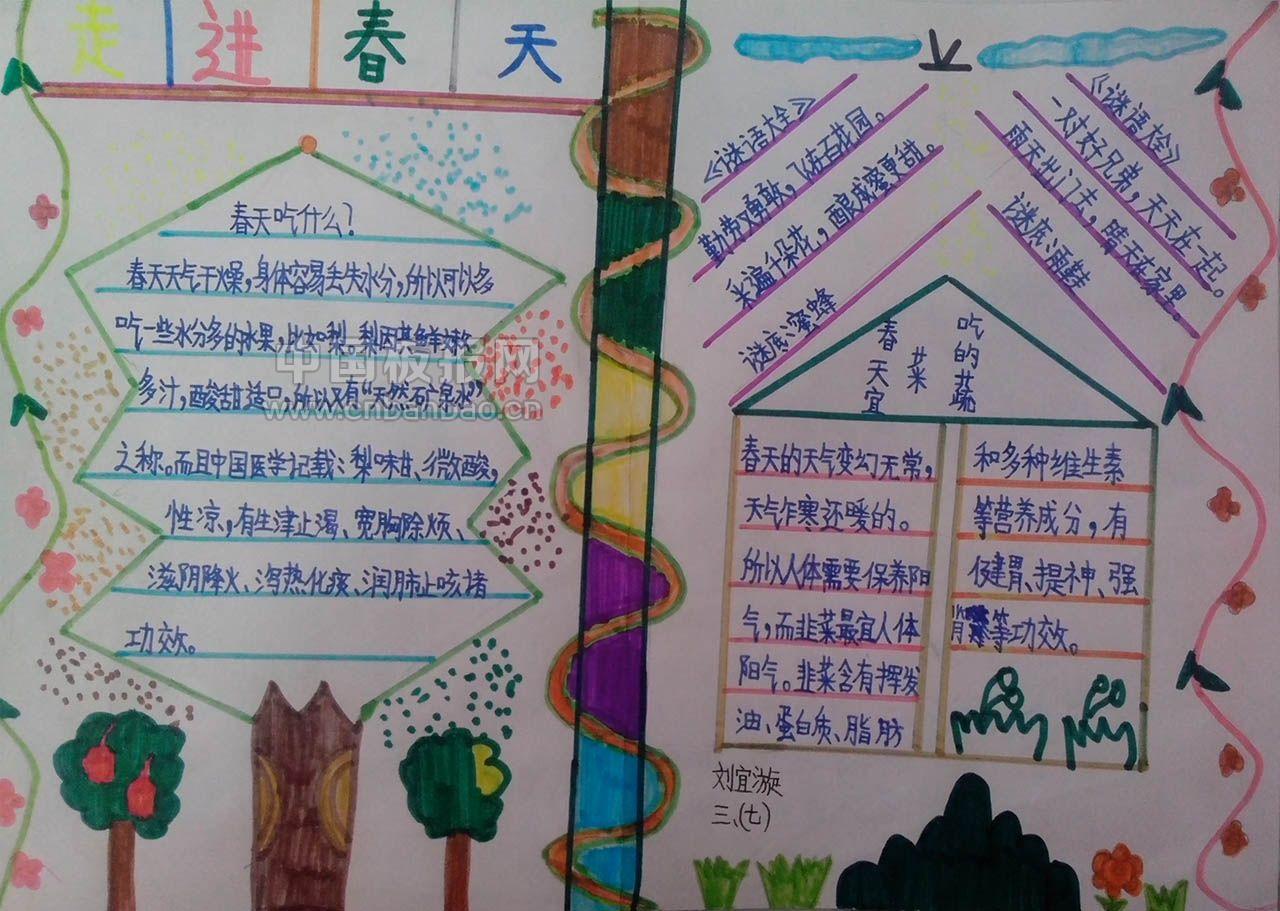 走进春天
春天吃什么?
春天天气干燥,身体容易丢失水分,所以可以多
吃一些水分多的水果,比如梨,梨因其鲜嫩
多汁,酸甜适口,所以又有“天然矿泉水”
之称。而且中国医学记载:梨味甘、微酸,
性凉,有生津止渴、宽胸除烦、
滋阴降火、泻热化痰、润肺止咳诸
功效。
中国板报网
www.cnbanbao.cn
《谜语大全》
勤劳又勇敢,飞访百花园。
采遍千朵花,酿成蜜更甜。
谜底:蜜蜂
《谜语大全》
一对好兄弟,天天在一起。
雨天出门去,晴天在家里。
谜底:雨鞋
春天宜
菜
吃的蔬
春天的天气变幻无常,
天气乍寒还暖的。
所以人体需要保养阳
气,而韭菜最宜人体
阳气。韭菜含有挥发
油、蛋白质、脂肪
和多种维生素
等营养成分,有
健胃、提神、强
等功效。
刘宜漩
三、(七)